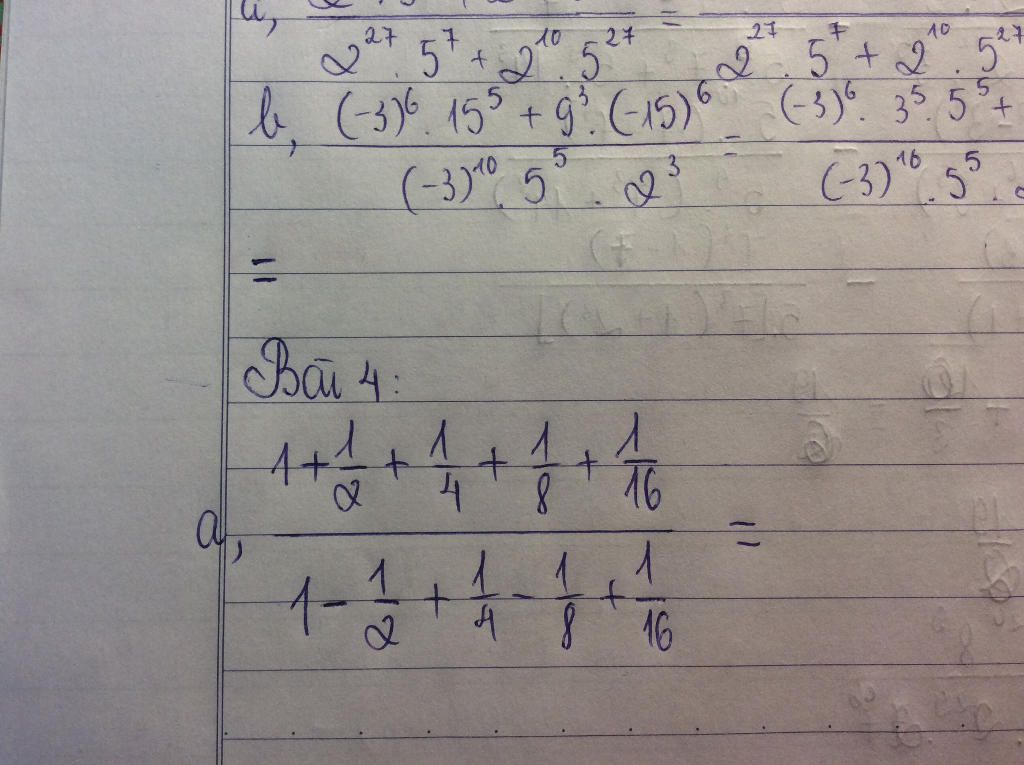 a,
2^27 . 5^7 + 2^10 . 5^27 = 2^27 . 5^7 + 2^10 . 5^27
b, ((-3)^6 . 15^5 + 9^3 . (-15)^6) / ((-3)^10 . 5^5 . 2^3) = (-3)^6 . 3^5 . 5^5 + / (-3)^10 . 5^5 .
=
Bài 4:
a, (1 + 1/2 + 1/4 + 1/8 + 1/16) / (1 - 1/2 + 1/4 - 1/8 + 1/16) =